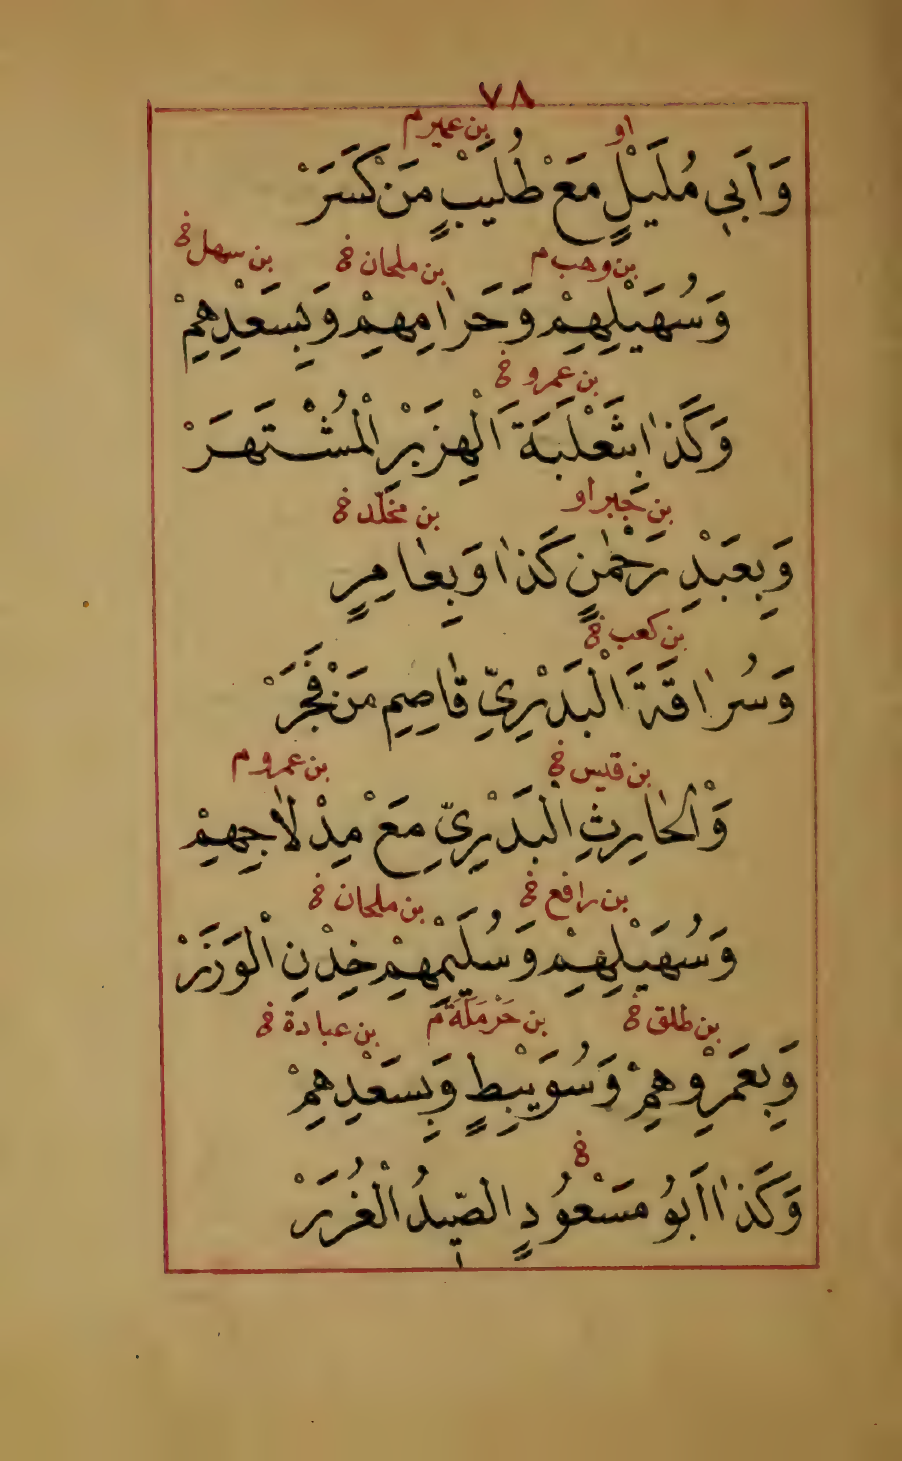 ٧٨
او بن عميرم
وَاَبِي مُلَيْلٍ مَعْ طُلَيْبٍ مَنْ كَسَرْ
بن وهب م بن ملحان خ بن سهل خ
وَسُهَيْلِهِمْ وَحَرَامِهِمْ وَبِسَعْدِهِمْ
بن عمرو خ
وَكَذَا بِثَعْلَبَةَ الْهِزَبْرِ الْمُشْتَهَرْ
بن جبر او بن مخلّد خ
وَبِعَبْدِ رَحْمٰنٍ كَذَا وَبِعَامِرٍ
بن كعب خ
وَسُرَاقَةَ الْبَدْرِيِّ قَاصِمِ مَنْ فَجَرْ
بن قيس خ بن عمرو م
وَالْحَارِثِ الْبَدْرِيِّ مَعْ مِدْلَاجِهِمْ
بن رافع خ بن ملحان خ
وَسُهَيْلِهِمْ وَسُلَيْمِهِمْ خِدْنِ الْوَزَرْ
بن طلق خ بن حَرْمَلَةَ م بن عبادة خ
وَبِعَمْرِوهِمْ وَسُوَيْبِطٍ وَبِسَعْدِهِمْ
خ
وَكَذَا اَبُو مَسْعُودٍ الصِّيدُ الْغُرَرْ